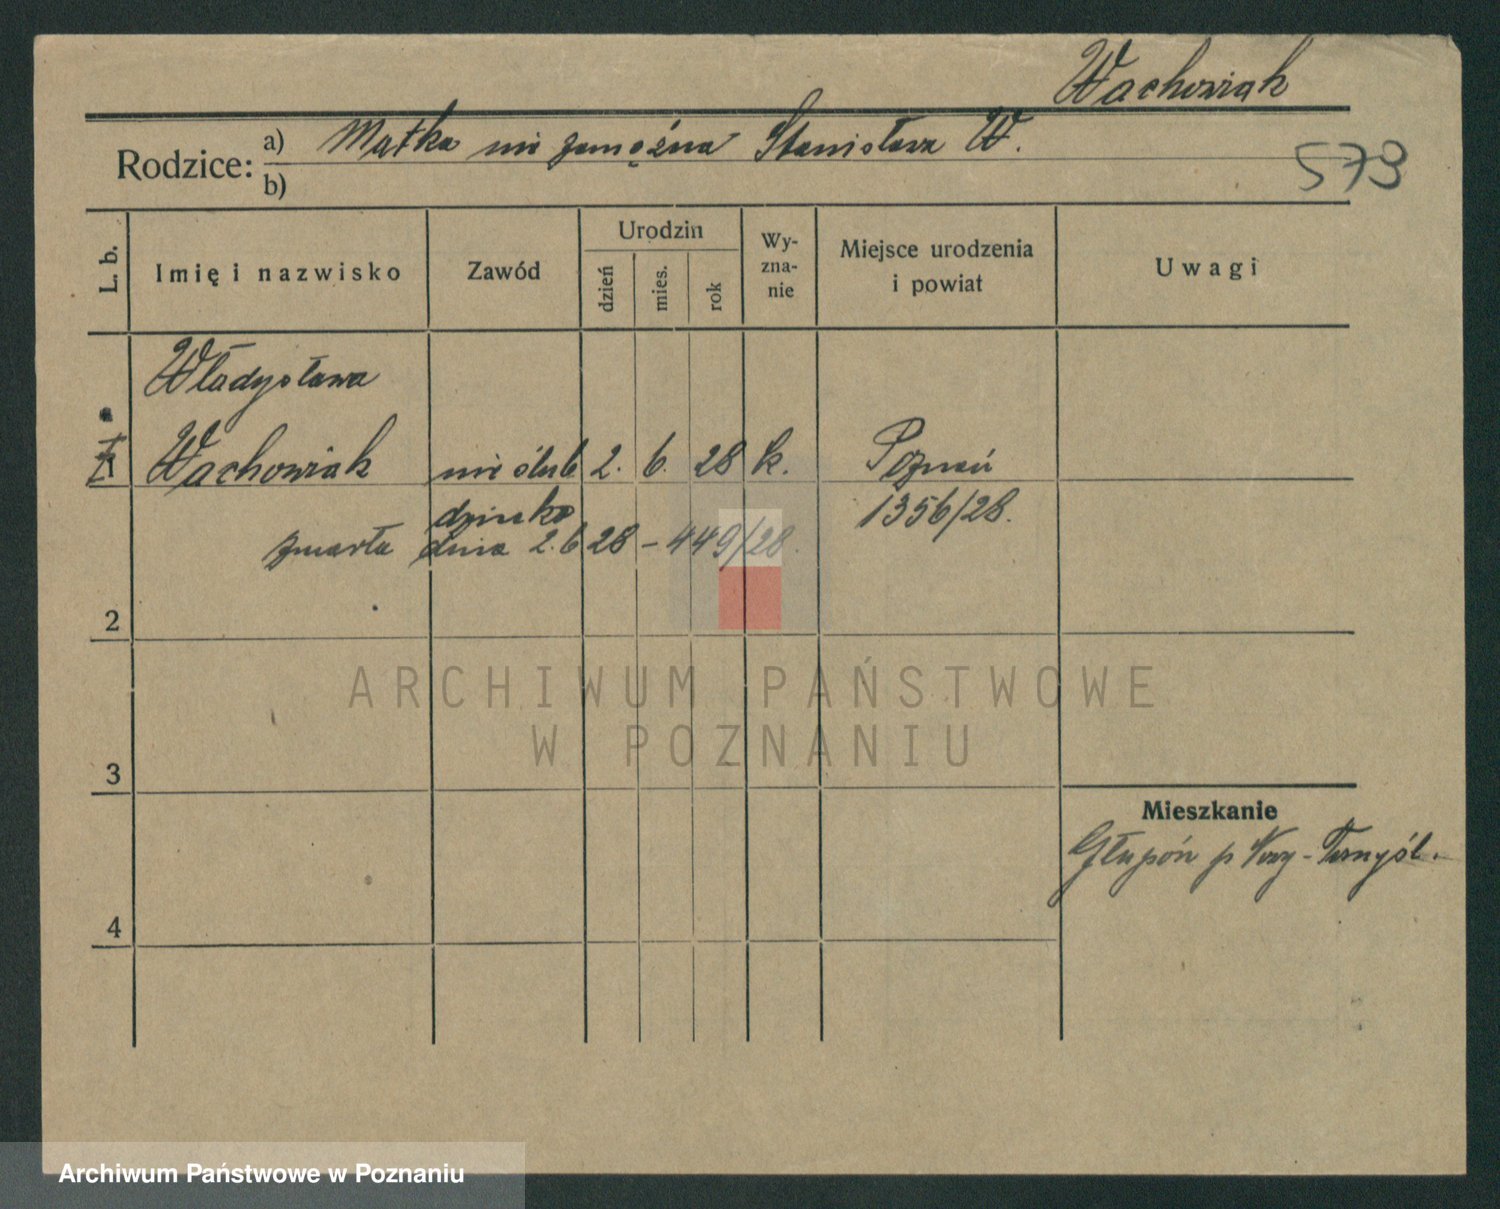 Wachowiak
Rodzice: a) Matka nie zamężna Stanisława W.
b)
573
L. b.
Imię i nazwisko
Zawód
Urodzin
dzień
mies.
rok
Wy-
zna-
nie
Miejsce urodzenia
i powiat
Uwagi
Władysława
1 Wachowiak nie ślub 2. 6. 28 k. Poznań
dziecko 1356/28.
zmarła dnia 2.6 28 - 449/28.
2
ARCHIWUM PAŃSTWOWE
W POZNANIU
3
Mieszkanie
Głupoń p Nowy-Tomyśl.
4
Archiwum Państwowe w Poznaniu